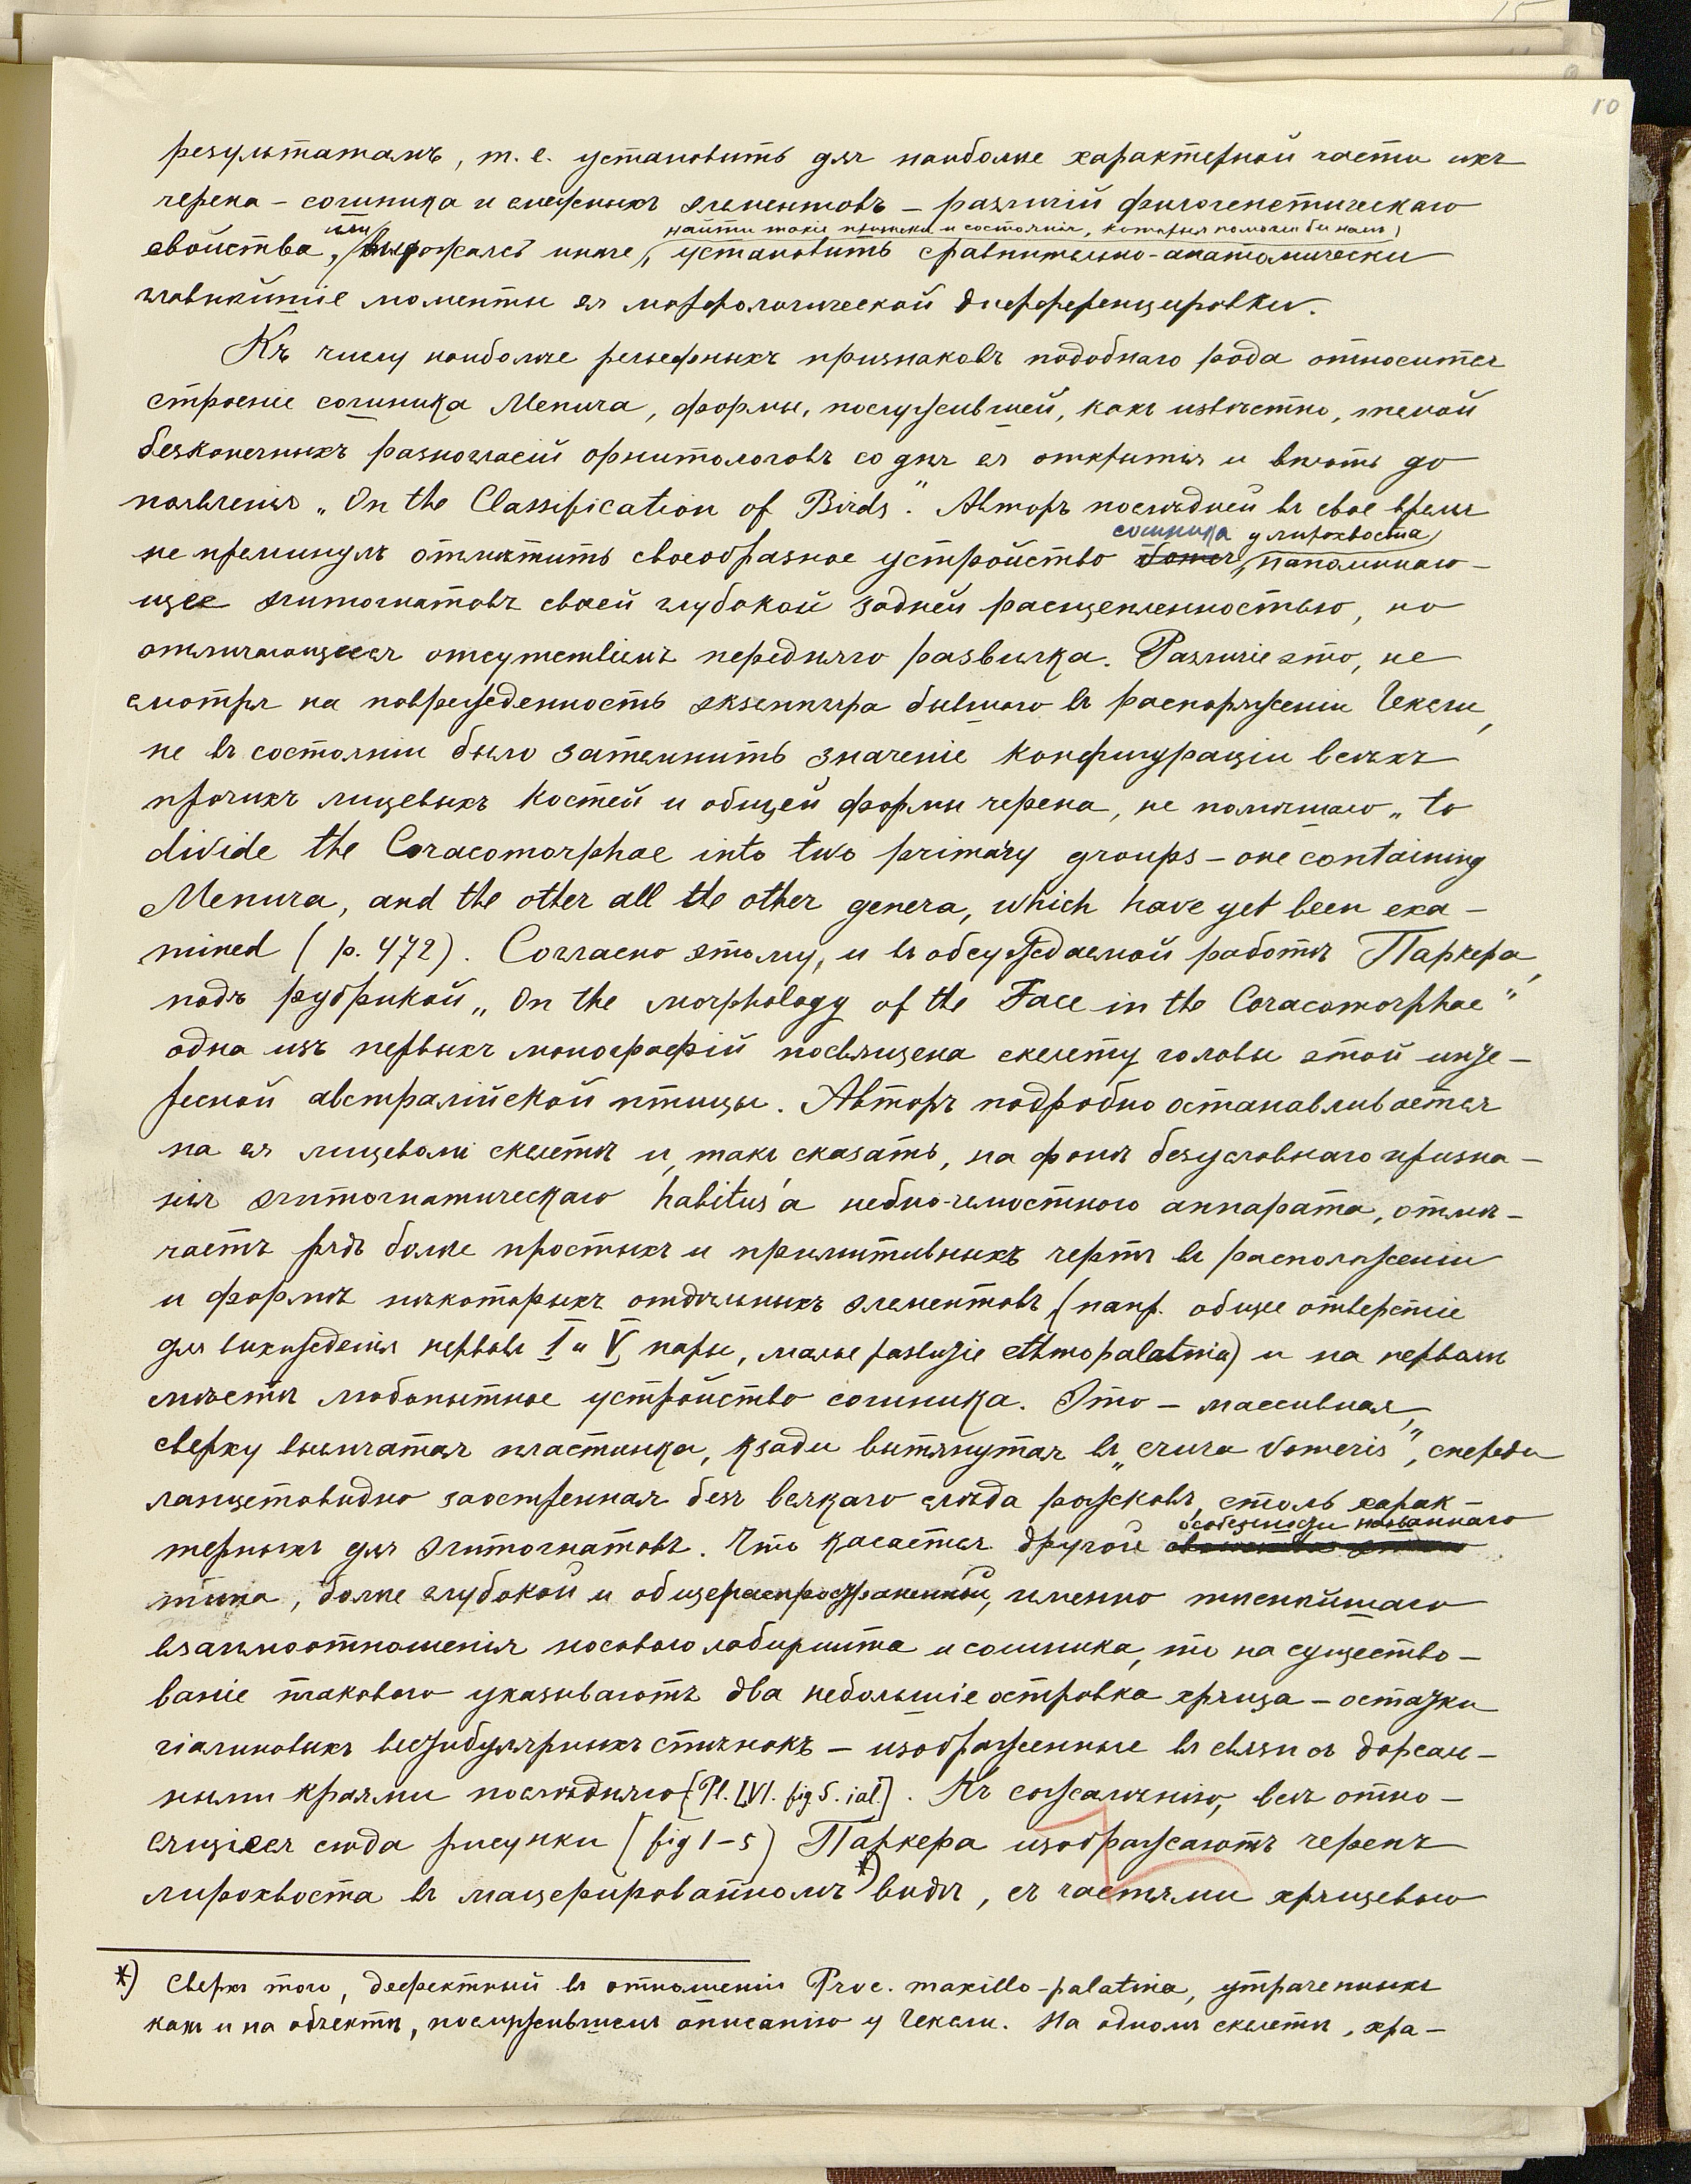 10
результатамъ, т. е. установить для наиболѣе характерной части ихъ
черепа – сошника и смежныхъ элементовъ – различій филогенетическаго
или найти такіе признаки и состоянія, которыя помогли бы намъ,
свойства, выражаясь иначе, установить сравнительно-анатомически
главнѣйшіе моменты ея морфологической дифференцировки.
Къ числу наиболѣе рельефныхъ признаковъ подобнаго рода относится
строеніе сошника Menura, формы, послужившей, какъ извѣстно, темой
безконечныхъ разногласій орнитологовъ со дня ея открытія и вплоть до
появленія „On the Classification of Birds". Авторъ послѣдней въ свое время
сошника у лирохвоста,
не преминулъ отмѣтить своеобразное устройство vomer, напоминаю-
щее эгитогнатовъ своей глубокой задней расщепленностью, но
отличающееся отсутствіемъ передняго развилка. Различіе это, не
смотря на поврежденность экземпляра бывшаго въ распоряженіи Гексли,
не въ состояніи было затемнить значеніе конфигураціи всѣхъ
прочихъ лицевыхъ костей и общей формы черепа, не помѣшало „to
divide the Coracomorphae into two primary groups – one containing
Menura, and the other all the other genera, which have yet been exa-
mined (p. 472). Согласно этому, и въ обсуждаемой работѣ Паркера,
подъ рубрикой „On the morphology of the Face in the Coracomorphae"
одна изъ первыхъ монографій посвящена скелету головы этой инте-
ресной австралійской птицы. Авторъ подробно останавливается
на ея лицевомъ скелетѣ и, такъ сказать, на фонѣ безусловнаго призна-
нія эгитогнатическаго habitus'а небно-челюстного аппарата, отмѣ-
чаетъ рядъ болѣе простыхъ и примитивныхъ чертъ въ расположеніи
и формѣ нѣкоторыхъ отдѣльныхъ элементовъ (напр. общее отверстіе
для выхожденія нервовъ I и V пары, малое развитіе ethmopalatina) и на первомъ
мѣстѣ любопытное устройство сошника. Это – массивная,
сверху выпуклая пластинка, кзади вытянутая въ „crura vomeris", спереди
ланцетовидно заостренная безъ всякаго слѣда рожковъ, столь харак-
особенности названнаго
терныхъ для эгитогнатовъ. Что касается другой
типа, болѣе глубокой и общераспространенной, именно тѣснѣйшаго
взаимоотношенія носового лабиринта и сошника, то на существо-
ваніе такового указываютъ два небольшіе островка хряща – остатки
гіалиновыхъ вестибулярныхъ стѣнокъ – изображенные въ связи съ дорсаль-
ными краями послѣдняго [Pl. LVI. fig 5. ial.]. Къ сожалѣнію, всѣ отно-
сящіеся сюда рисунки (fig 1–5) Паркера изображаютъ черепъ
лирохвоста въ мацерированномъ*) видѣ, съ частями хрящевого
*) Сверхъ того, дефектный въ отношеніи Proc. maxillo-palatina, утраченныхъ
какъ и на объектѣ, послужившемъ описанію у Гексли. На одномъ скелетѣ, хра-